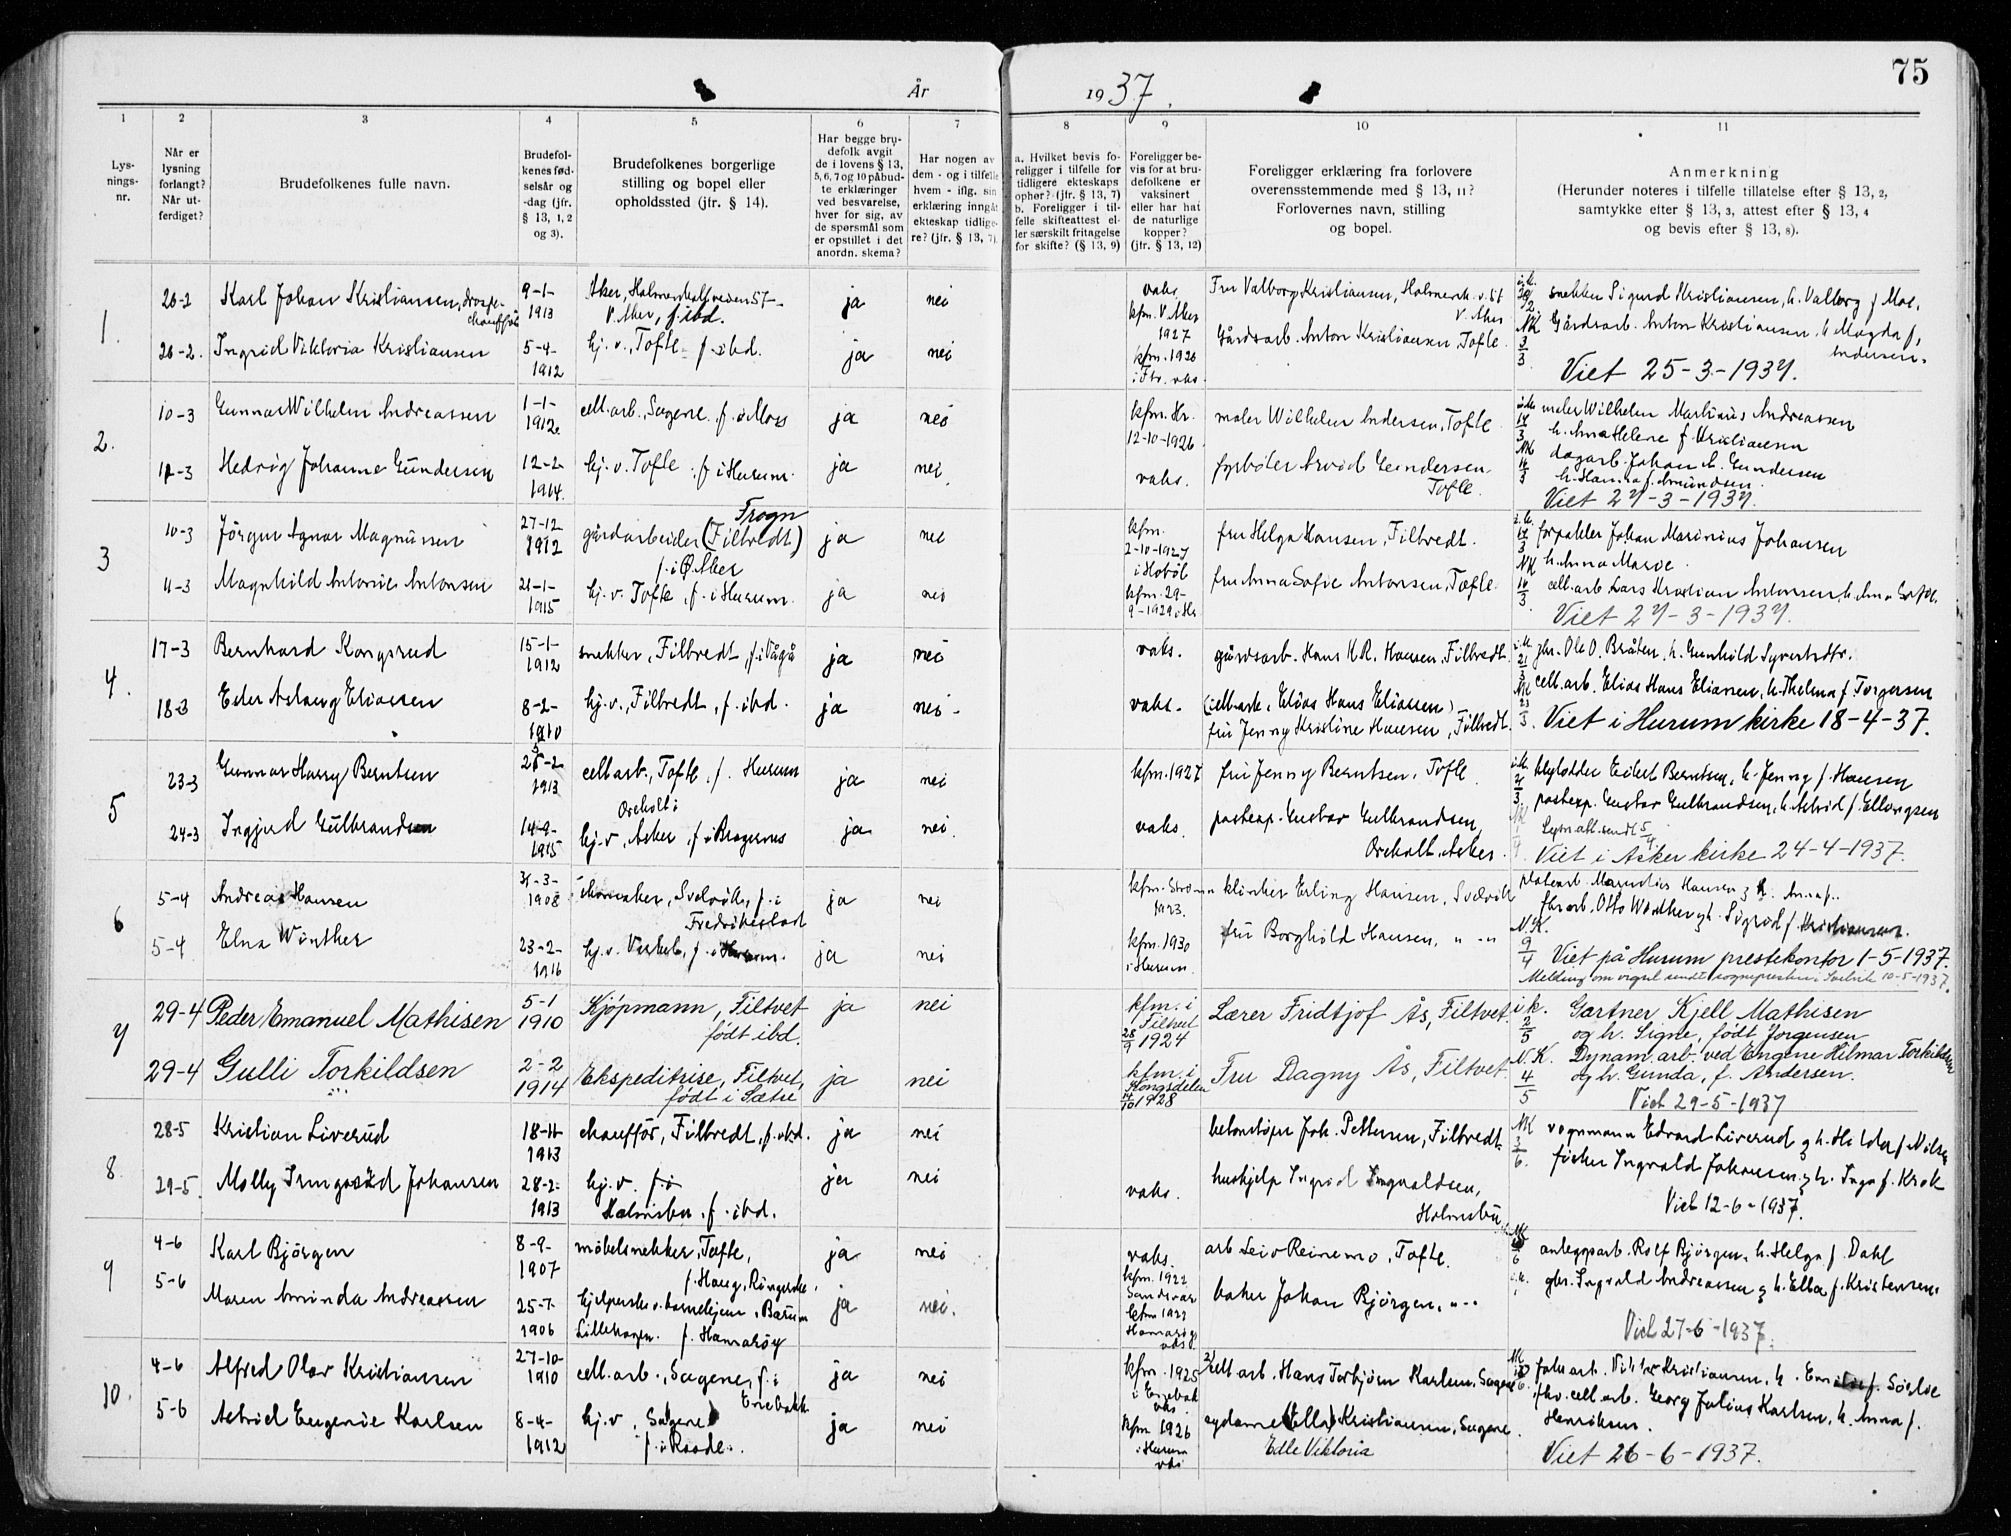 75
År 1937.
1 2 3 4 5 6 7 8 9 10 11
Lysnings-nr.
Når er lysning forlangt? Når utferdiget?
Brudefolkenes fulle navn.
Brudefolkenes fødselsår og -dag (jfr. § 13, 1, 2 og 3).
Brudefolkenes borgerlige stilling og bopel eller opholdssted (jfr. § 14).
Har begge brudefolk avgit de i lovens § 13, 5, 6, 7 og 10 påbudte erklæringer ved besvarelse, hver for sig, av de spørsmål som er opstillet i det anordn. skema?
Har nogen av dem - og i tilfelle hvem - iflg. sin erklæring inngåt ekteskap tidligere? (jfr. § 13, 7).
a. Hvilket bevis foreligger i tilfelle for tidligere ekteskaps ophør? (jfr. § 13, 7)
b. Foreligger i tilfelle skifteattest eller særskilt fritagelse for skifte? (§ 13, 9)
Foreligger bevis for at brudefolkene er vaksinert eller har hat de naturlige kopper? (jfr. § 13, 12)
Foreligger erklæring fra forlovere overensstemmende med § 13, 11? Forlovernes navn, stilling og bopel.
Anmerkning
(Herunder noteres i tilfelle tillatelse efter § 13, 2, samtykke efter § 13, 3, attest efter § 13, 4 og bevis efter § 13, 8).
1.
26-2 Karl Johan Kristiansen, drosjechauffør 9-1-1913 Aker, V. Aker, f. ibd. ja nei vaks. kfm. V. Aker 1927 Fru Valborg Kristiansen, V. Aker snekker Sigurd Kristiansen, h. Valborg f. Moe.
26-2. Ingrid Viktoria Kristiansen 5-4-1912 hj. v., Tofte f. ibd. ja nei kfm. 1926 Gårdsarb. Anton Kristiansen, Tofte. NK 3/3 Gårdsarb. Anton Kristiansen, h. Magda f. Andersen.
Viet 25-3-1937.
2.
10-3 Gunnar Wilhelm Andreassen 1-1-1912. cell. arb., Sagene. f. i Moss ja nei kfm. Hr. 12-10-1926 maler Wilhelm Andersen, Tofte. maler Wilhelm Martinius Andreassen h. Anna Helene f. Kristiansen
12-3 Hedvig Johanne Gundersen 12-2-1914. hj. v. Tofte. f. i Hurum. ja nei. vaks. fyrbøter Arvid Gundersen, Tofte. NK dagarb. Johan A. Gundersen h. Hanna f. Amundsen.
Viet 27-3-1937.
3
10-3 Jörgen Agnar Magnussen 27-12 1912 gårdarbeider (Filtvedt) Frogn f. i Ø. Aker ja nei kfm. 2-10-1927 i Hobøl fru Helga Hansen, Filtvedt. forpakter Johan Marinius Johansen h. Anna Marie.
11-3 Magnhild Antonie Antonsen 21-1-1915 hj. v. Tofte, f. i Hurum. ja nei kfm. 29-9-1929 i Hr. fru Anna Sofie Antonsen, Tofte. NK cell. arb. Lars Kristian Antonsen, h. Anna Sofie.
Viet 27-3-1937.
4.
17-3 Bernhard Kongsrud 15-1-1912 snekker, Filtvedt, f. i Vågå ja nei vaks. gårdsarb. Hans K.R. Hansen, Filtvedt. gbr. Ole O. Bråten, h. Gunhild Syvertsdtr.
18-3 Eder Aslaug Eliassen 8-2-1910 hj. v., Filtvedt, f. ibd. ja nei - vaks. (cell. arb. Elias Hans Eliassen) fru Jenny Kristine Hansen, Filtvedt. NK 23/3 cell. arb. Elias Hans Eliassen, h. Thelma f. Torgersen
Viet i Hurum kirke 18-4-37.
5
23-3 Gunnar Harry Berntsen 25-2 1913 cell arb., Tofte. f. Hurum ja nei kfm. 1927 fru Jenny Berntsen, Tofte Eilert Berntsen, h. Jenny f. Hansen
24-3 Ingjerd Gulbrandsen 14-9-1915 hj. v. Asker f. i Bragernes ja nei. vaks. postexp. Gustav Gulbrandsen, Asker. postexp. Gustav Gulbrandsen, h. Astrid f. Ellingsen
Lysn. att. sendt 5/4
Viet i Asker kirke 24-4-1937.
6
5-4 Andreas Hansen 31-3-1908 skomaker, Svelvik, f. i Fredrikstad ja nei kfm. Strømm 1923. Erling Hansen, Svelvik Hansen & h. Anna f..
5-4 Elna Winther 23-2-1916 hj. v. f. i Hurum. ja nei kfm. 1930 i Hurum. fru Borghild Hansen, " - " N.K. 9/4 fbr. arb. Otto Winther & h. Sigrid f. Kristiansen.
Viet på Hurum prestekontor 1-5-1937.
Melding om vigsel sendt sognepresten i Svelvik 10-5-1937.
7
29-4 Peder Emanuel Mathisen 5-1 1910 Kjøpmann, Filtvet født ibd. ja nei kfm. i Filtvet 28/9 1924 Lærer Fridtjof Ås, Filtvet. i k. 2/5 Gartner Kjell Mathisen og h. Signe, født Jørgensen
29-4 Gulli Torkildsen 2-2 1914 Ekspeditrise, Filtvet, født i Sætre ja nei kfm. i Kongsdelen 14/10 1928 Fru Dagny Ås, Filtvet. N.K. 4/5 Dynam. arb. ved Engene Hilmar Torkildsen og h. Gunda, f. Andersen.
Viet 29-5-1937
8.
28-5 Kristian Liverud 18-11 1913 chauffør, Filtvedt, f. ibd. ja nei Joh. Pettersen, Filtvedt NK 3/6. vognmann Edvard Liverud & h. Hilda f. Nilsen
29-5. Molly Irmgard Johansen 28-2-1913 hj. v. f. i Holmsbu, f. ibd. ja nei vaks. hushjelp Ingrid Ingvaldsen, Holmsbu fisker Ingvald Johansen & h. Inga f. Krok
Viet 12-6-1937.
9
4-6 Karl Bjørgen 8-9-1907 møbelsnekker, Tofte, f. Haug, Ringerike. ja nei vaks. kfm. 1922 arb Leif Reinemo, Tofte. anleggsarb. Rolf Bjørgen, h. Helga f. Dahl
5-6 Maren Aminda Andreassen 25-7-1906 barnehjem, Bærum f. Hamarøy ja nei. kfm 1922 Hamarøy vaks. baker Johan Bjørgen, " - " gbr. Ingvald Andreassen & h. Ella f. Kristensen.
Viet 27-6-1937.
10.
4-6 Alfred Olav Kristiansen 27-10-1910 cell. arb., Sagene, f. i Enebakk ja nei kfm. 1925 i Enebak vks. cell arb. Hans Torbjørn Karlsen, Sagene
5-6 Astrid Eugenie Karlsen 8-4-1912 hj. v., Sagene f. i Raade. ja nei kfm 1926 i Hurum vks sydame (Ella) Kristiansen, Sagene. Edle Viktoria cell arb. Georg Julius Karlsen, h. Anna f. Henriksen.
Viet 26-6-1937.